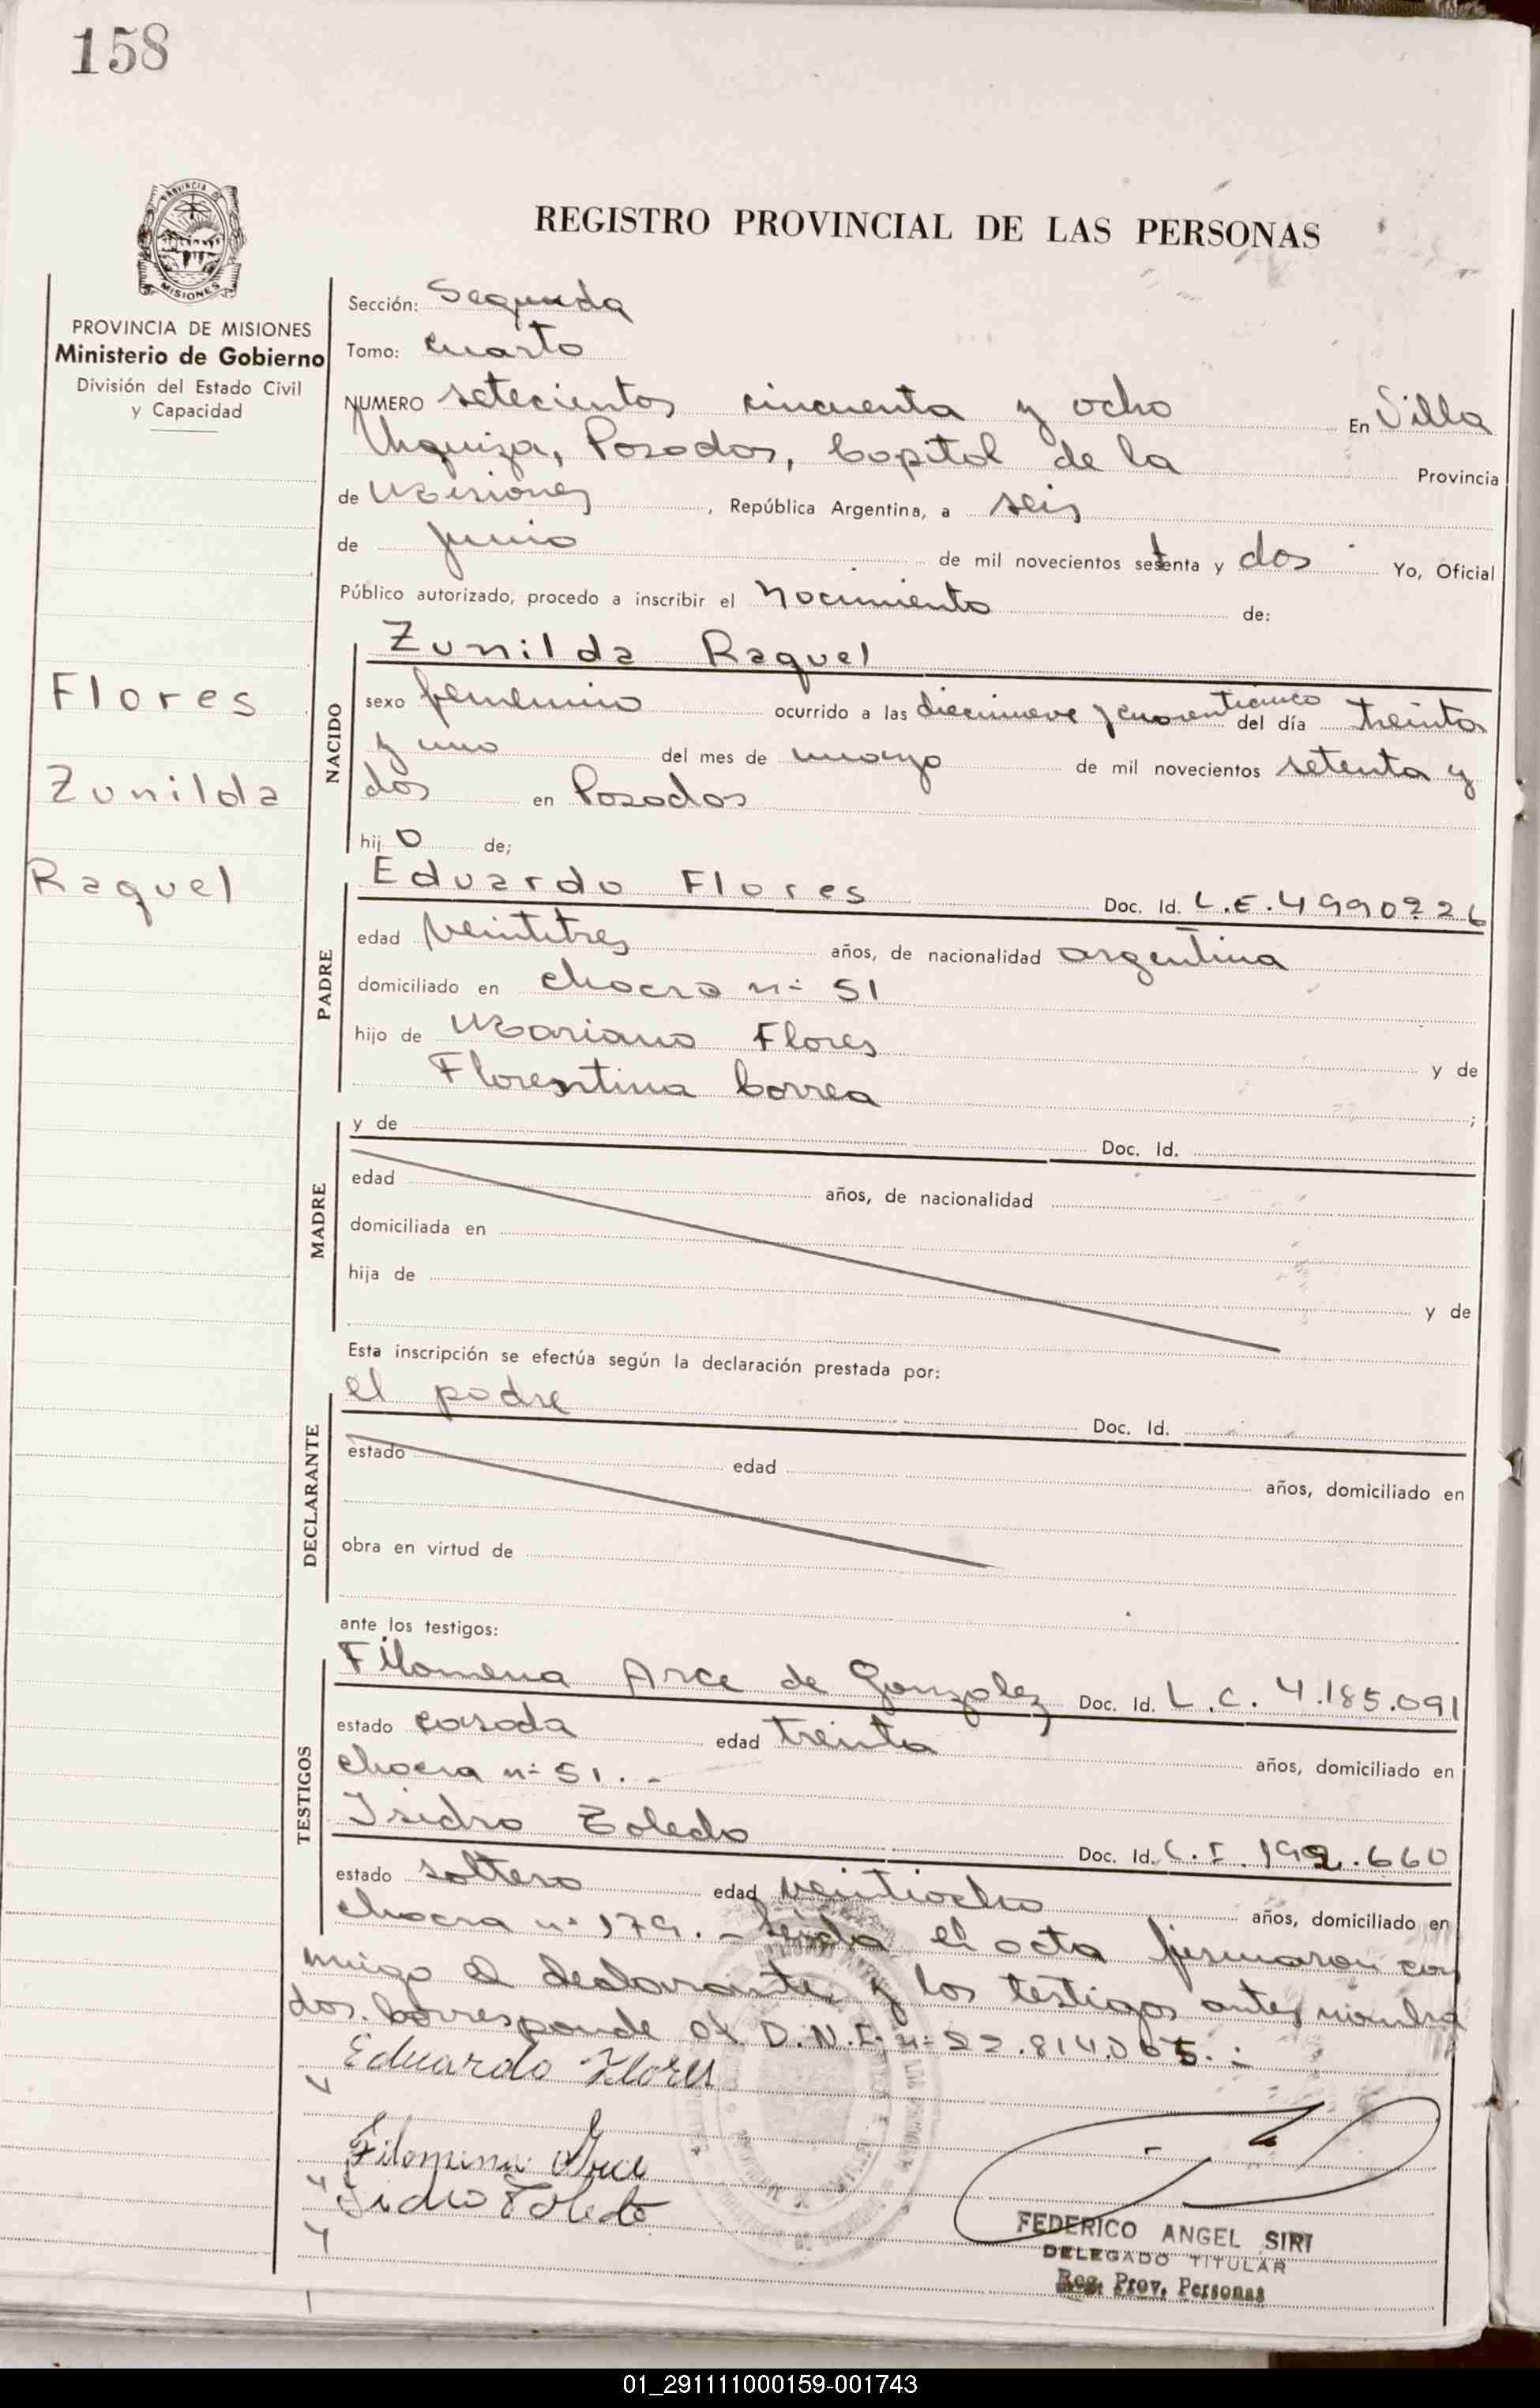 158
PROVINCIA
MISIONES
PROVINCIA DE MISIONES
Ministerio de Gobierno
División del Estado Civil
y Capacidad
Flores
Zunilda
Raquel
REGISTRO PROVINCIAL DE LAS PERSONAS
Sección: Segunda
Tomo: Cuarto
NUMERO setecientos cincuenta y ocho En Villa
Urquiza, Posadas, Capital de la Provincia
de Misiones, República Argentina, a seis
de junio de mil novecientos setenta y dos Yo, Oficial
Público autorizado, procedo a inscribir el Nacimiento de:
NACIDO
Zunilda Raquel
sexo femenino ocurrido a las diecinueve y cuarenticinco del día treinta
y uno del mes de mayo de mil novecientos setenta y
dos en Posadas
hij o de;
PADRE
Eduardo Flores Doc. Id. L.E. 4990226
edad veintitres años, de nacionalidad argentina
domiciliado en chacra n: 51
hijo de Mariano Flores y de
Florentina Correa ;
MADRE
y de Doc. Id.
edad años, de nacionalidad
domiciliada en
hija de y de
Esta inscripción se efectúa según la declaración prestada por:
DECLARANTE
el padre Doc. Id.
estado edad años, domiciliado en
obra en virtud de
ante los testigos:
TESTIGOS
Filomena Arce de Gonzalez Doc. Id. L.C. 4.185.091
estado casada edad treinta años, domiciliado en
chacra n: 51.-
Isidro Toledo Doc. Id. C.I. 192.660
estado soltero edad veintiocho años, domiciliado en
chacra n: 179.- Leida el acta firmaron con
migo el declarante y los testigos antes nombra
dos. Corresponde al D.N.I. n: 22.814.065.-
Eduardo Flores
Filomena Arce
Isidro Toledo
FEDERICO ANGEL SIRI
DELEGADO TITULAR
Reg. Prov. Personas
01_291111000159-001743